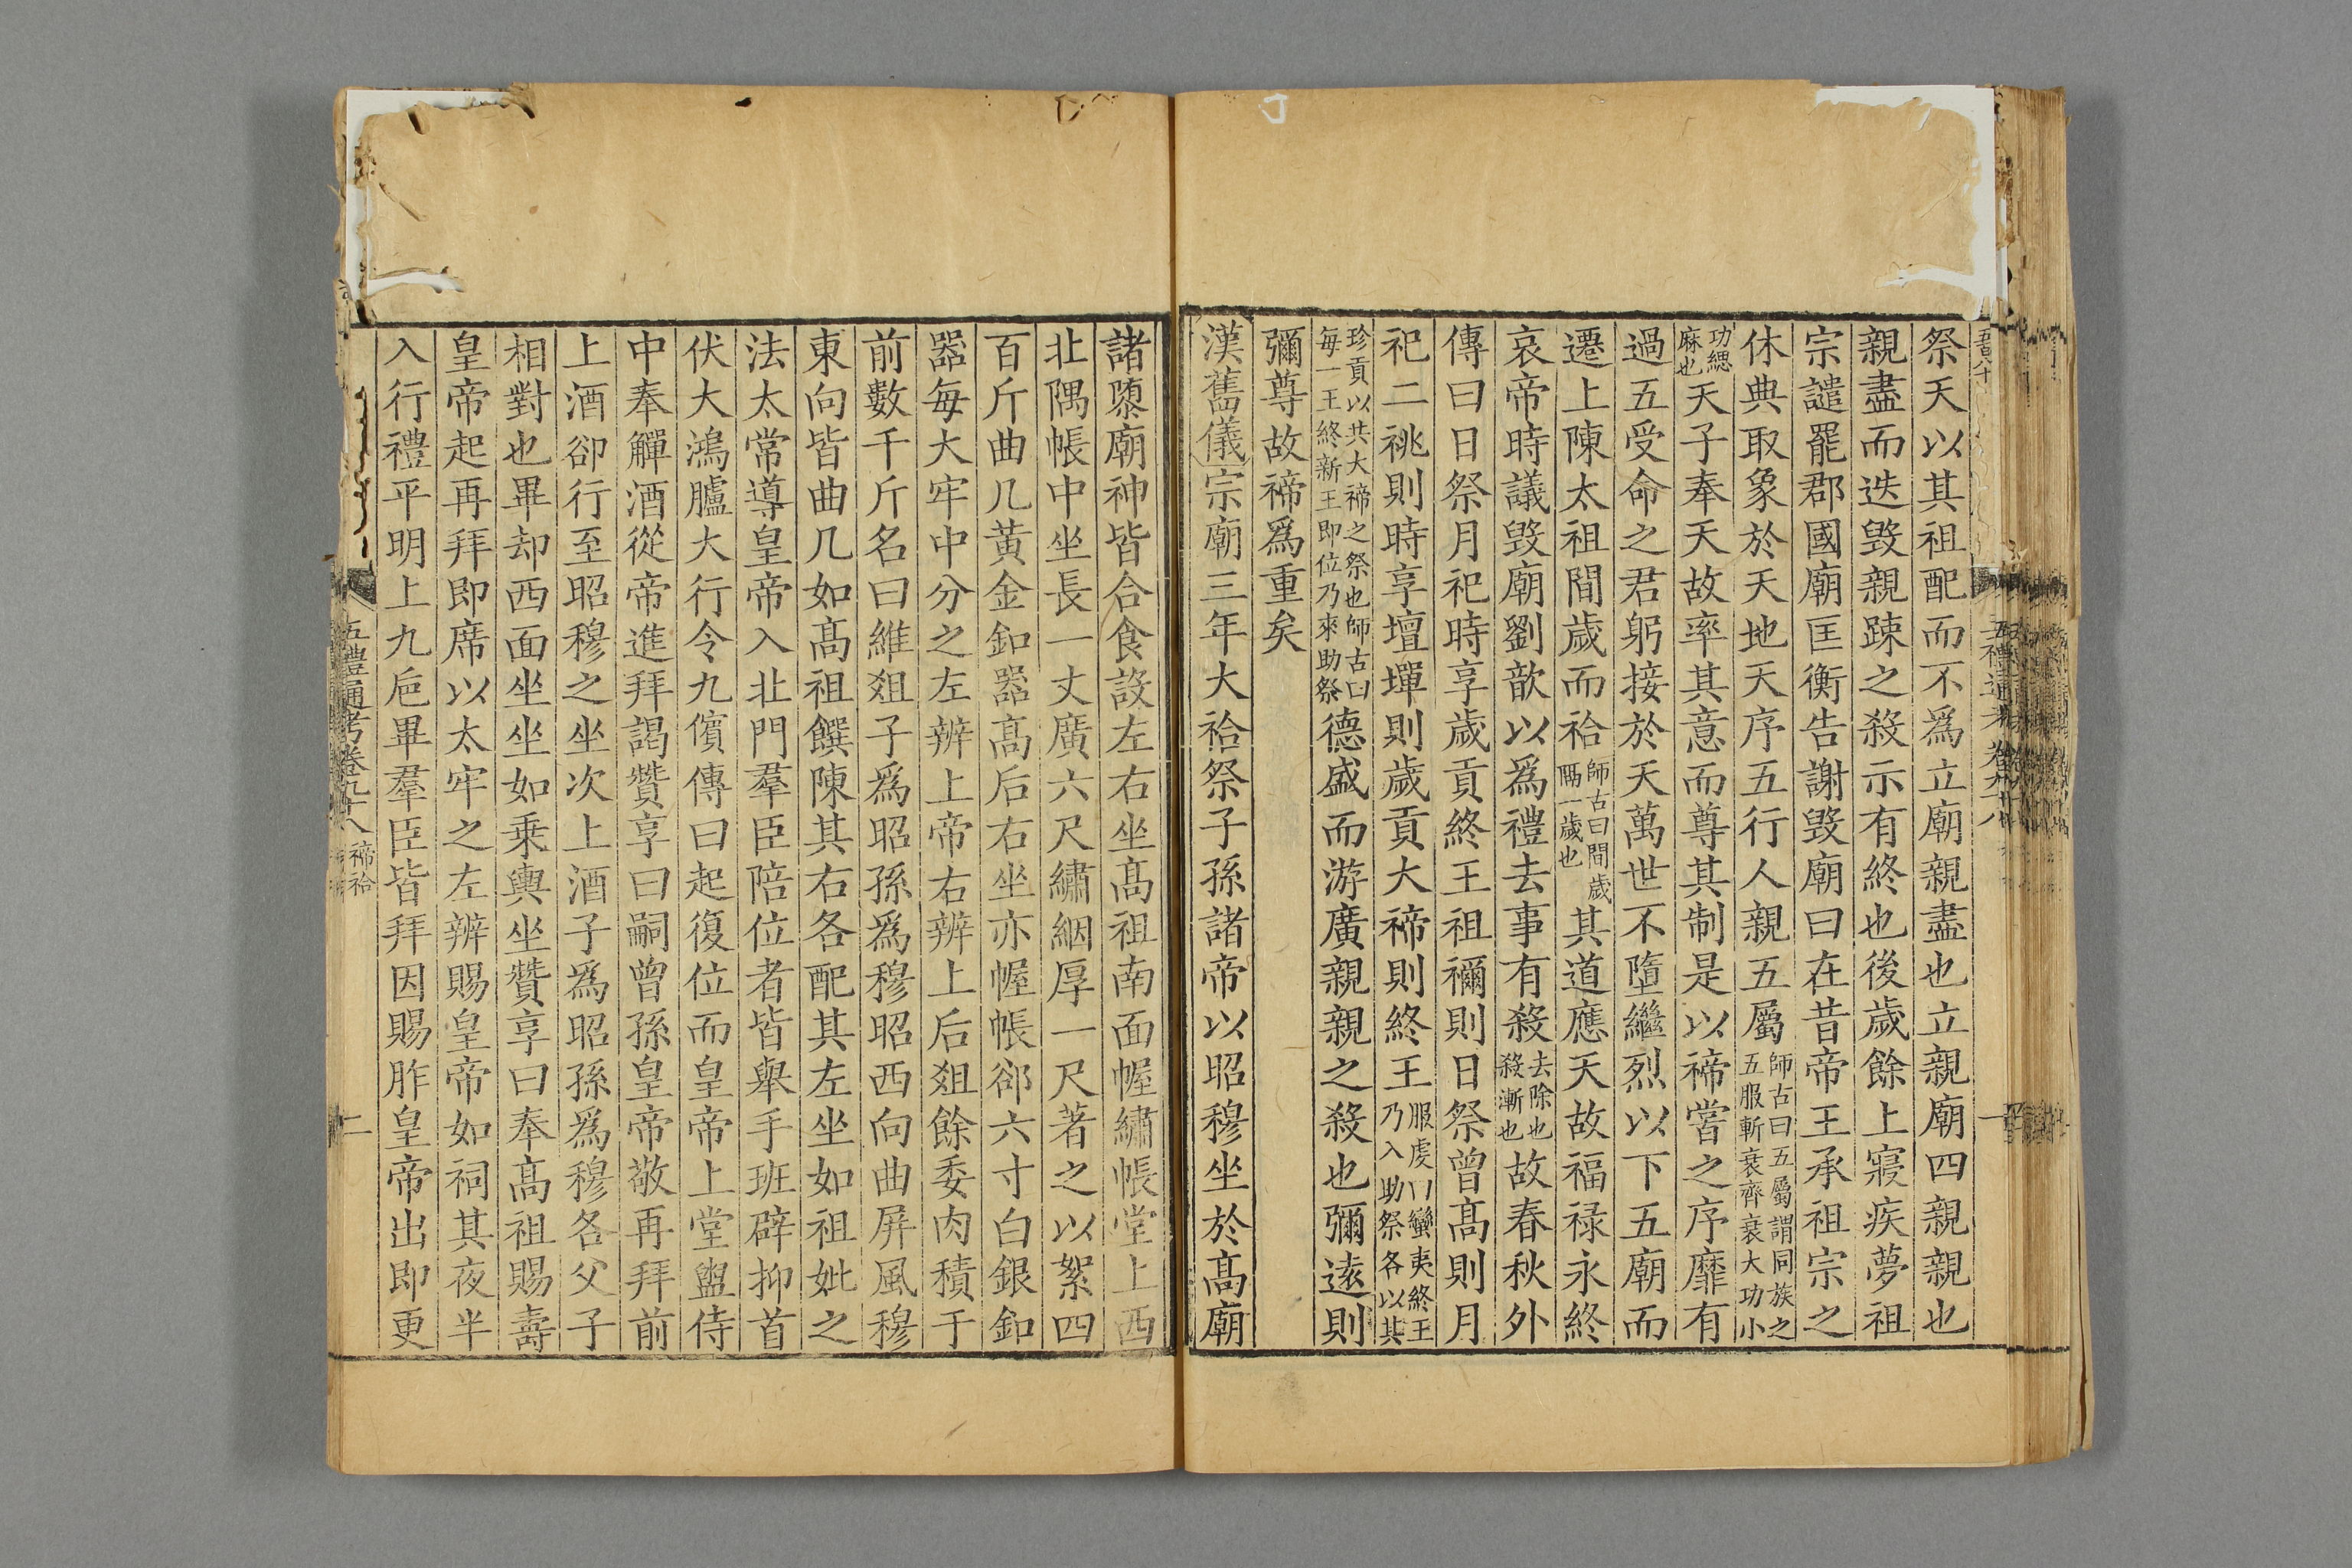 祭天以其祖配而不爲立廟親盡也立親廟四親親也
親盡而迭毁親踈之殺示有終也後歲餘上寢疾夢祖
宗譴罷郡國廟匡衡告謝毁廟曰在昔帝王承祖宗之
休典取象於天地天序五行人親五屬師古曰五屬謂同族之五服斬衰齊衰大功小
功緦麻也天子奉天故率其意而尊其制是以禘嘗之序靡有
過五受命之君躬接於天萬世不墮繼烈以下五廟而
遷上陳太祖間歲而祫師古曰間歲隔一歲也其道應天故福禄永終
哀帝時議毁廟劉歆以爲禮去事有殺去除也殺漸也故春秋外
傳曰日祭月祀時享歲貢終王祖禰則日祭曾髙則月
祀二祧則時享壇墠則歲貢大禘則終王服虔曰蠻夷終王乃入助祭各以其
珍貢以共大禘之祭也師古曰每一王終新王即位乃來助祭德盛而游廣親親之殺也彌逺則
彌尊故禘爲重矣
漢舊儀宗廟三年大祫祭子孫諸帝以昭穆坐於髙廟
諸隳廟神皆合食設左右坐髙祖南面幄繡帳堂上西
北隅帳中坐長一丈廣六尺繡絪厚一尺著之以絮四
百斤曲几黄金釦器髙后右坐亦幄帳郤六寸白銀釦
器每大牢中分之左辨上帝右辨上后俎餘委肉積于
前數千斤名曰維俎子爲昭孫爲穆昭西向曲屏風穆
東向皆曲几如髙祖饌陳其右各配其左坐如祖妣之
法太常導皇帝入北門羣臣陪位者皆舉手班辟抑首
伏大鴻臚大行令九儐傳曰起復位而皇帝上堂盥侍
中奉觶酒從帝進拜謁贊享曰嗣曾孫皇帝敬再拜前
上酒卻行至昭穆之坐次上酒子爲昭孫爲穆各父子
相對也畢却西面坐坐如乗輿坐贊享曰奉髙祖賜壽
皇帝起再拜即席以太牢之左辨賜皇帝如祠其夜半
入行禮平明上九巵畢羣臣皆拜因賜胙皇帝出即更
五禮通考卷九十八 禘祫
二